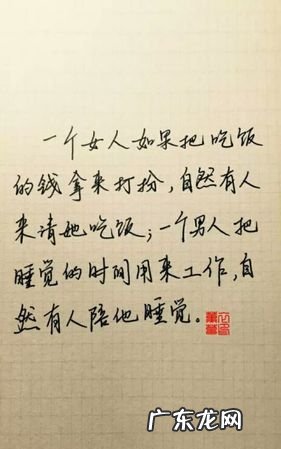 一个女人如果把吃饭
的钱拿来打扮，自然有人
来请她吃饭；一个男人把
睡觉的时间用来工作，自
然有人陪他睡觉。
广东龙网